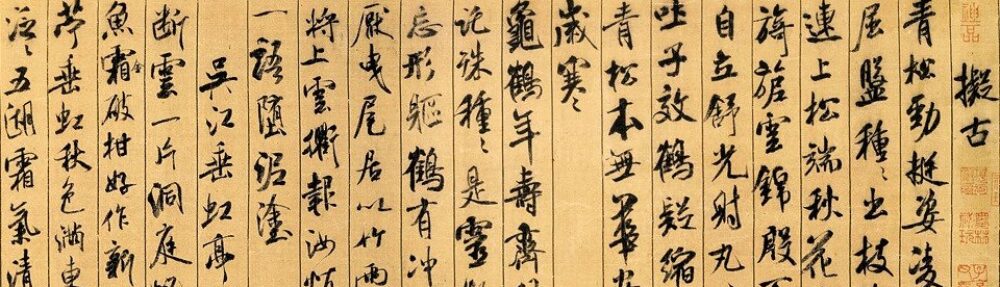 擬古
青松勁挺姿凌
屈盤種々出枝
連上松端秋花
旖旎雲錦殷
自立舒光射丸
吐子效鶴疑縮
青松本無華
歲寒
龜鶴年壽齊
託殊種々是靈
忘形軀鶴有冲
厭曳尾居以竹兩
將上雲衢報汝慎
一語墮泥塗
吳江垂虹亭
斷雲一片洞庭
魚霜金破柑好作新
苧垂虹秋色滿東
泛々五湖霜氣清